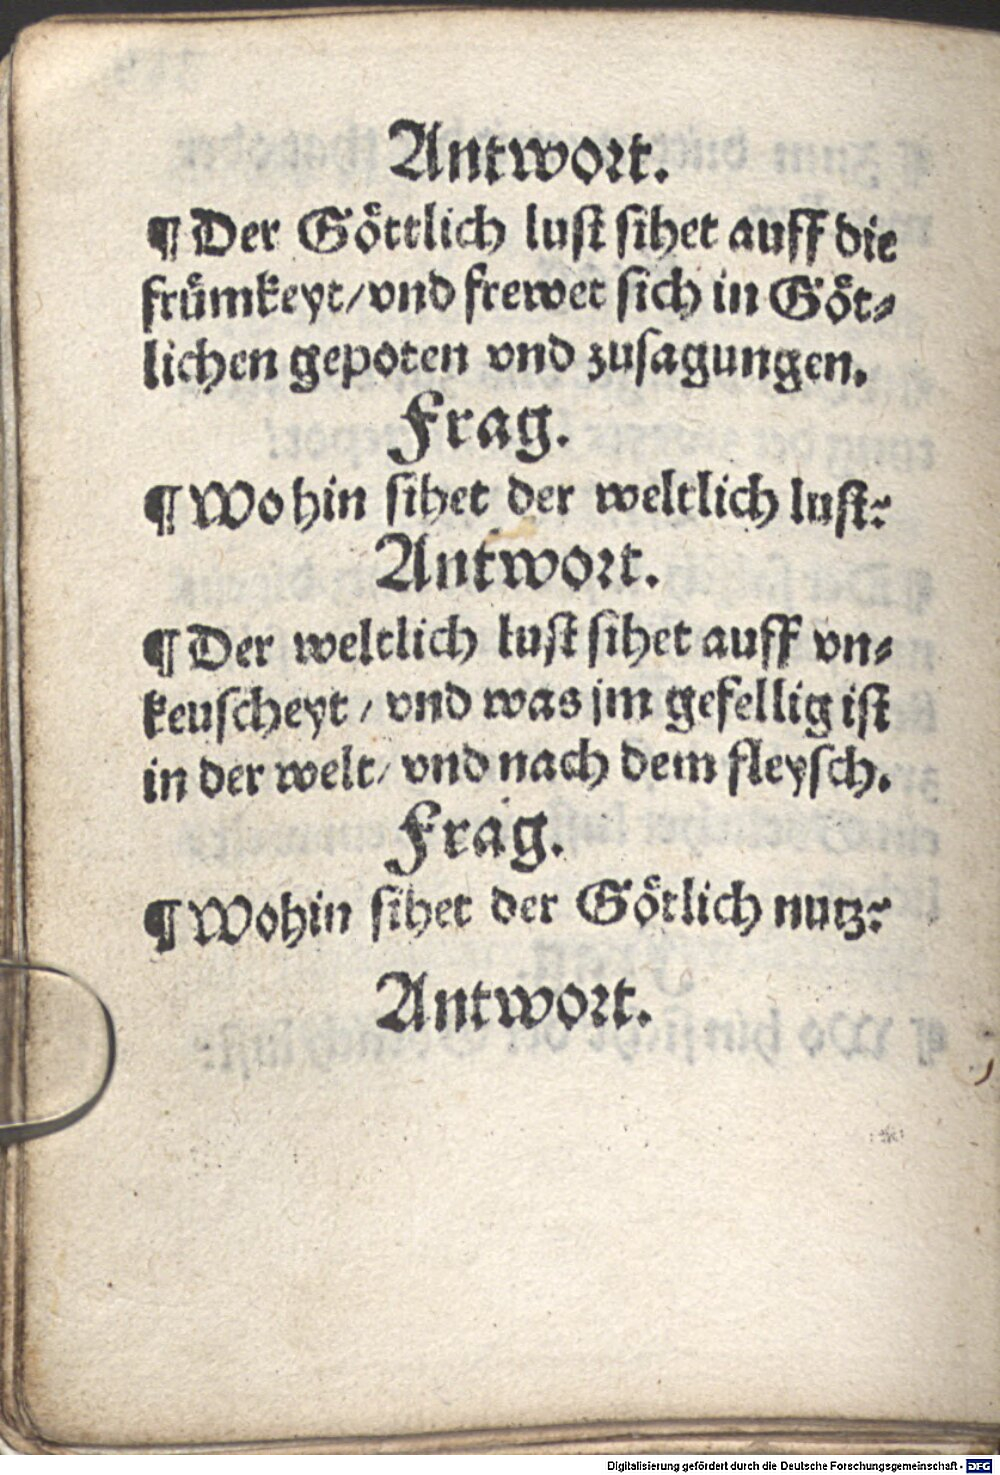 Antwort.
¶ Der Göttlich lust sihet auff die
frümkeyt/ vnd frewet sich in Göt⸗
lichen gepoten vnd zusagungen.
Frag.
¶ Wo hin sihet der weltlich lust?
Antwort.
¶ Der weltlich lust sihet auff vn⸗
keuscheyt / vnd was jm gefellig ist
in der welt/ vnd nach dem fleysch.
Frag.
¶ Wohin sihet der Götlich nutz?
Antwort.
Digitalisierung gefördert durch die Deutsche Forschungsgemeinschaft - DFG